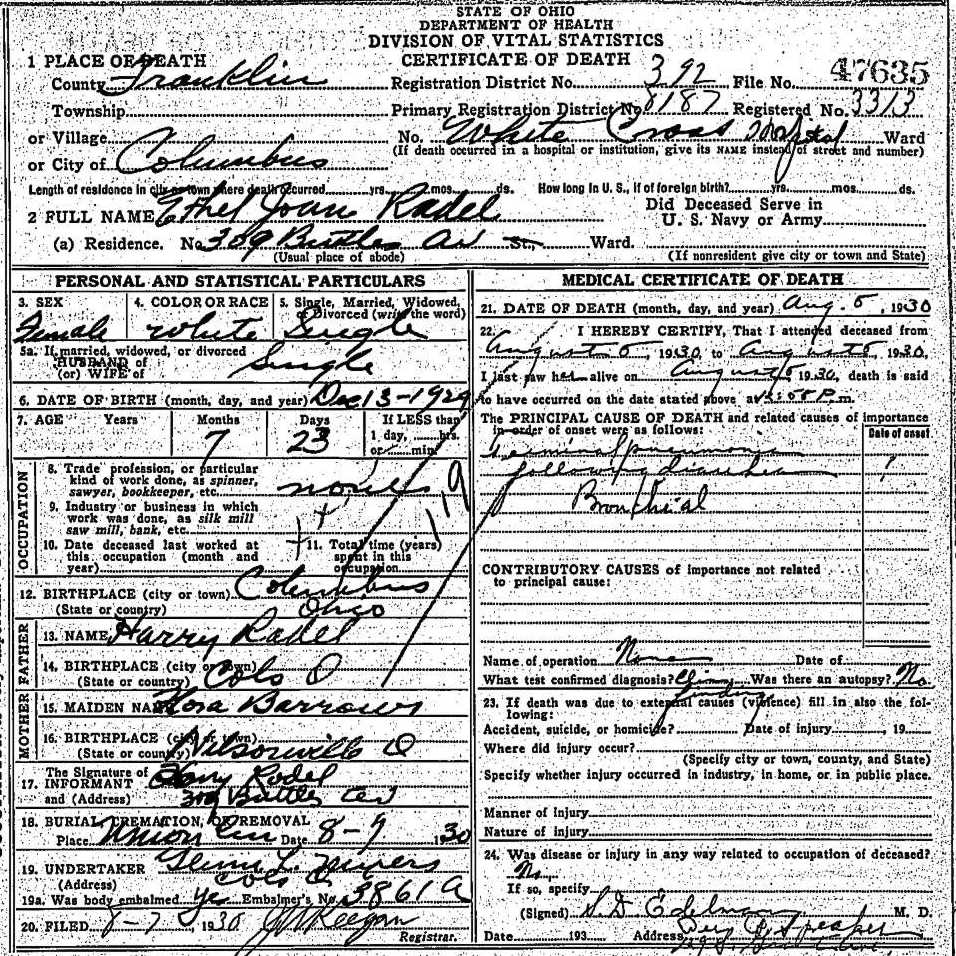 STATE OF OHIO
DEPARTMENT OF HEALTH
DIVISION OF VITAL STATISTICS
CERTIFICATE OF DEATH
1 PLACE OF DEATH
County Franklin Registration District No. 392 File No. 47635
Township Primary Registration District No. 8187 Registered No. 3313
or Village No. White Cross Hospital Ward
(If death occurred in a hospital or institution, give its NAME instead of street and number)
or City of Columbus
Length of residence in city or town where death occurred yrs. mos. ds. How long in U. S., if of foreign birth? yrs. mos. ds.
2 FULL NAME Ethel Joan Radel Did Deceased Serve in
U. S. Navy or Army
(a) Residence. No. 309 Buttles Av St. Ward.
(Usual place of abode) (If nonresident give city or town and State)
PERSONAL AND STATISTICAL PARTICULARS
3. SEX 4. COLOR OR RACE 5. Single, Married, Widowed, or Divorced (write the word)
Female White Single
5a. If married, widowed, or divorced
HUSBAND of
(or) WIFE of Single
6. DATE OF BIRTH (month, day, and year) Dec 13-1929
7. AGE Years Months Days If LESS than
7 23 1 day, hrs.
or min.
OCCUPATION
8. Trade, profession, or particular
kind of work done, as spinner,
sawyer, bookkeeper, etc.
9. Industry or business in which
work was done, as silk mill
saw mill, bank, etc.
119
10. Date deceased last worked at
this occupation (month and
year)
11. Total time (years)
spent in this
occupation
12. BIRTHPLACE (city or town) Columbus
(State or country) Ohio
FATHER
13. NAME Harry Radel
14. BIRTHPLACE (city or town)
(State or country) Cols O
MOTHER
15. MAIDEN NAME Flora Barrows
16. BIRTHPLACE (city or town)
(State or country) O
17. The Signature of
INFORMANT Harry Radel
and (Address) 309 Buttles Av
18. BURIAL, CREMATION, OR REMOVAL
Place Union Cem Date 8-7 1930
19. UNDERTAKER
(Address) Cols O
19a. Was body embalmed Yes Embalmer's No. 3861 A
20. FILED 8-7, 1930 Keegan
Registrar.
MEDICAL CERTIFICATE OF DEATH
21. DATE OF DEATH (month, day, and year) Aug. 5, 1930
22. I HEREBY CERTIFY, That I attended deceased from
August 5, 1930, to August 5, 1930,
I last saw her alive on August 5 1930, death is said
to have occurred on the date stated above at P.m.
The PRINCIPAL CAUSE OF DEATH and related causes of importance
in order of onset were as follows:
Date of onset
Terminal pneumonia
following diarrhea ?
Bronchial
CONTRIBUTORY CAUSES of importance not related
to principal cause:
Name of operation None Date of
What test confirmed diagnosis? Was there an autopsy? No.
finding
23. If death was due to external causes (violence) fill in also the fol-
lowing:
Accident, suicide, or homicide? Date of injury , 19
Where did injury occur?
(Specify city or town, county, and State)
Specify whether injury occurred in industry, in home, or in public place.
Manner of injury
Nature of injury
24. Was disease or injury in any way related to occupation of deceased?
No
If so, specify
(Signed) Edelman M. D.
Date 193 Address